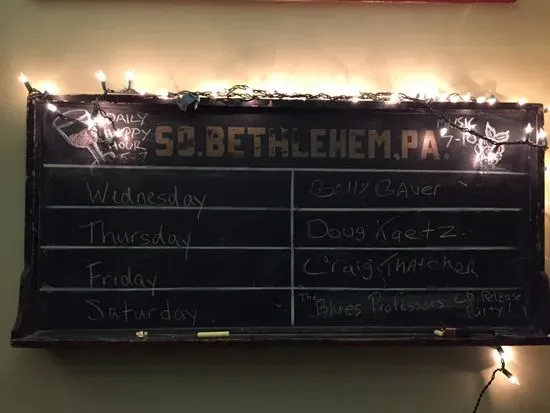 DAILY
HAPPY
HOUR
5-7
SO. BETHLEHEM, PA.
MUSIC
7-10
Wednesday
Billy Bauer
Thursday
Doug Kaetz
Friday
Craig Thatcher
Saturday
The Blues Professors CD Release
Party!